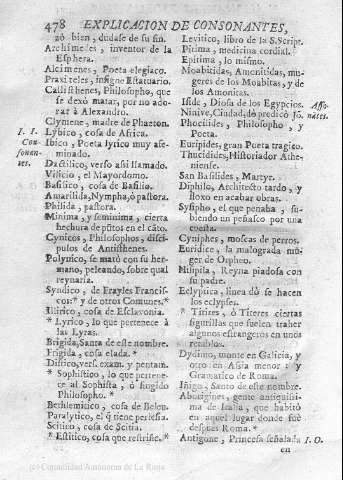 478 EXPLICACION DE CONSONANTES,
zò bien, dudase de su fin.
Archimedes, inventor de la
Esphera.
Alcimenes, Poeta elegiaco.
Praxiteles, insigne Estatuario.
Callisthenes, Philosopho, que
se dexò matar, por no ado-
rar à Alexandro.
Clymene, madre de Phaeton.
I. I.
Con-
sonan-
tes.
Lybico, cosa de Africa.
Ibico, Poeta lyrico muy afe-
minado.
Dactilico, verso assi llamado.
Vilicio, el Mayordomo.
Basilico, cosa de Basilio.
Amarilida, Nympha, ò pastora.
Philida, pastora.
Minima, y seminima, cierta
hechura de pütos en el cäto.
Cynicos, Philosophos, disci-
pulos de Antisthenes.
Polynico, se matò con su her-
mano, peleando, sobre qual
reynaria.
Syndico, de Frayles Francis-
cos: * y de otros Comunes. *
Illirico, cosa de Esclavonia.
* Lyrico, lo que pertenece à
las Lyras.
Brigida, Santa de este nombre.
Frigida, cosa elada. *
Distico, vers. exam. y pentam.
* Sophistico, lo que pertene-
ce al Sophista, ò fingido
Philosopho. *
Bethlemitico, cosa de Belen.
Paralytico, el q̃ tiene perlesia.
Scitico, cosa de Scitia.
* Estitico, cosa que restriñe. *
Levitico, libro de la S. Script.
Pitima, medicina cordial.
Epitima, lo mismo.
Moabitidas, Amonitidas, mu-
geres de los Moabitas, y de
los Amonitas.
Iside, Diosa de los Egypcios.
Asso-
nantes.
Ninive, Ciudad, dò predicò Jo.
Phocilides, Philosopho, y
Poeta.
Euripides, gran Poeta tragico.
Thucidides, Historiador Athe-
niense.
San Basilides, Martyr.
Diphilo, Architecto tardo, y
floxo en acabar obras.
Sysipho, el que penaba, su-
biendo un peñasco por una
cuesta.
Cyniphes, moscas de perros.
Euridice, la malograda mu-
ger de Orpheo.
Hisipila, Reyna piadosa con
su padre.
Ecliptica, linea dò se hacen
los eclypses.
* Titires, ò Titeres ciertas
figurillas que suelen traher
algunos estrangeros en unos
retablos.
Dydimo, monte en Galicia, y
otro en Asia menor: y
Gramatico de Roma.
Iñigo, Santo de este nombre.
Aborigines, gente antiquissi-
ma de Italia, que habitò
en aquel lugar donde fuè
despues Roma. *
Antigone, Princesa señalada
I. O.
en
(c) Comunidad Autónoma de La Rioja